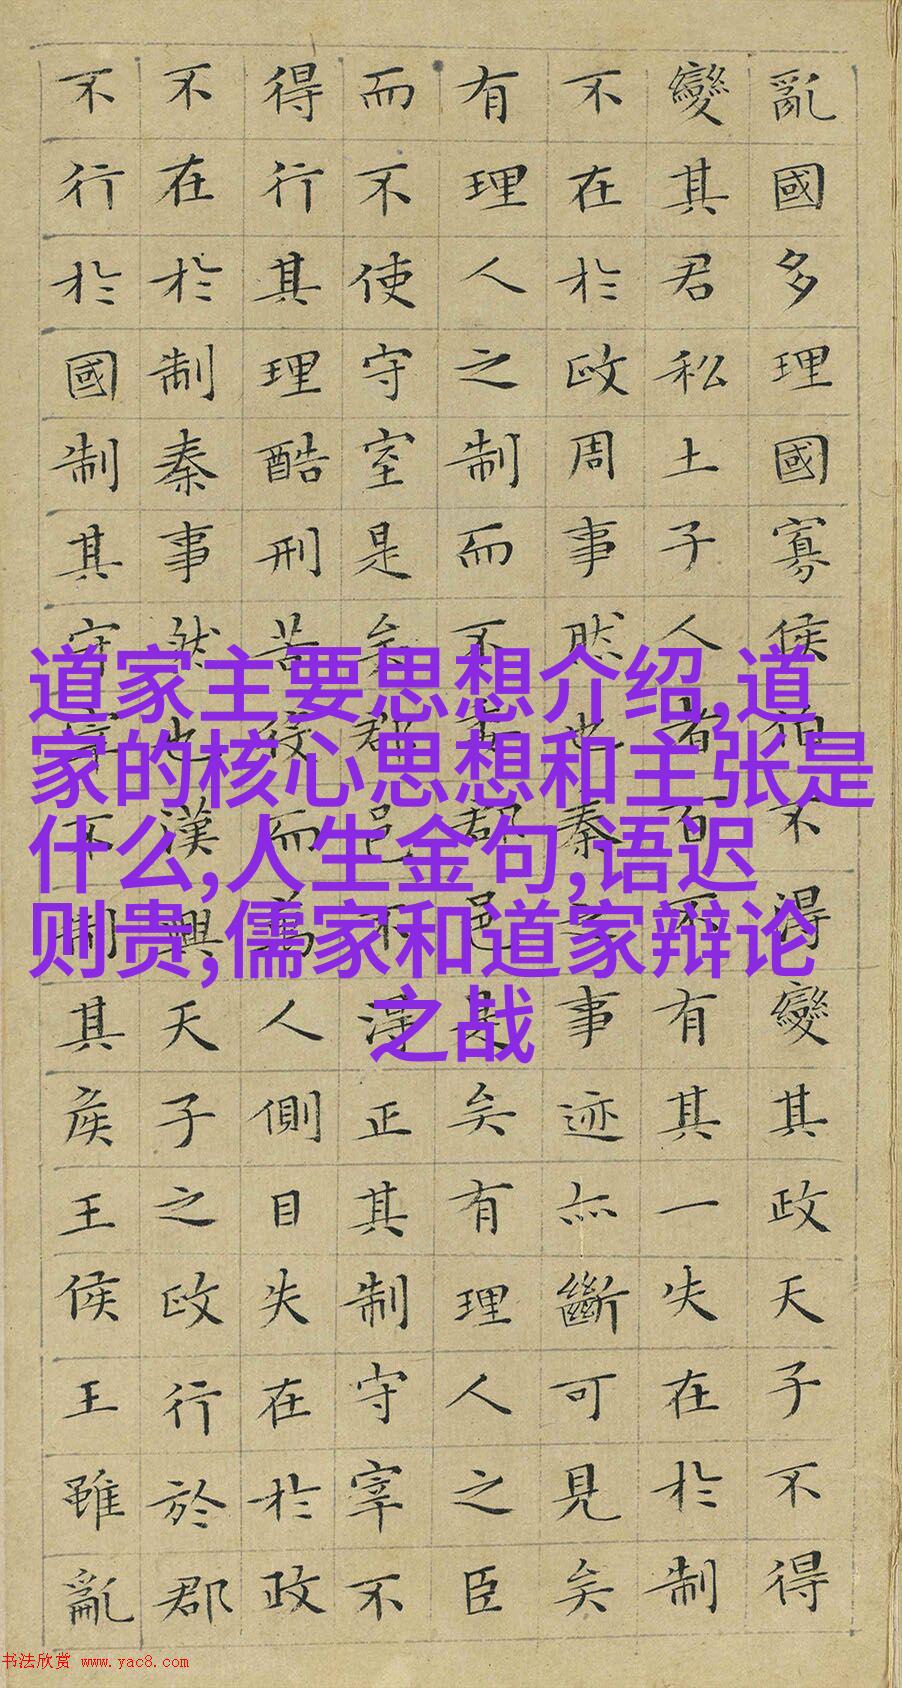 亂國多理國寡侯伯不得變其政天子不得
變其君私土子人者百不有其一失在於制
不在於政周事然也秦之事迹亦斷可見矣
有理人之制而不委郡邑是矣有理人之臣
而不使守宰是矣郡邑不得正其制守宰不
得行其理酷刑苦役而萬人側目失在於政
不在於制秦事然也漢興天子之政行於郡
不行於國制其守宰不制其侯王侯王雖亂
道家主要思想介绍,道
家的核心思想和主张是
什么,人生金句,语迟
则贵,儒家和道家辩论
之战
书法欣赏 www.yac8.com